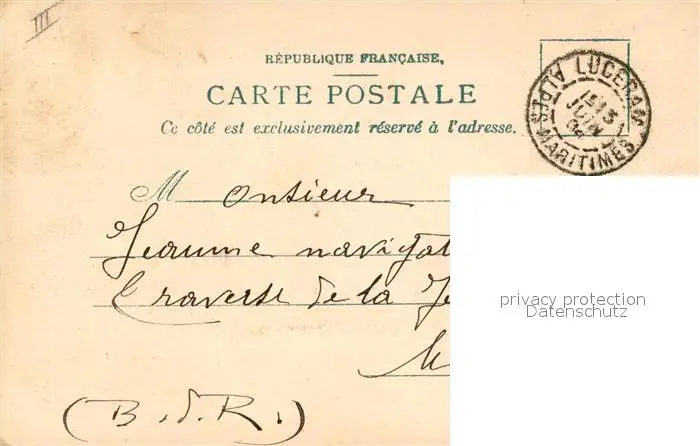 III
RÉPUBLIQUE FRANÇAISE.
CARTE POSTALE
Ce côté est exclusivement réservé à l'adresse.
LUCERAM
13
JUIN
ALPES MARITIMES
Monsieur
Jeaume navigat
Traverse de la Je
M
(B.d.R.)
privacy protection
Datenschutz